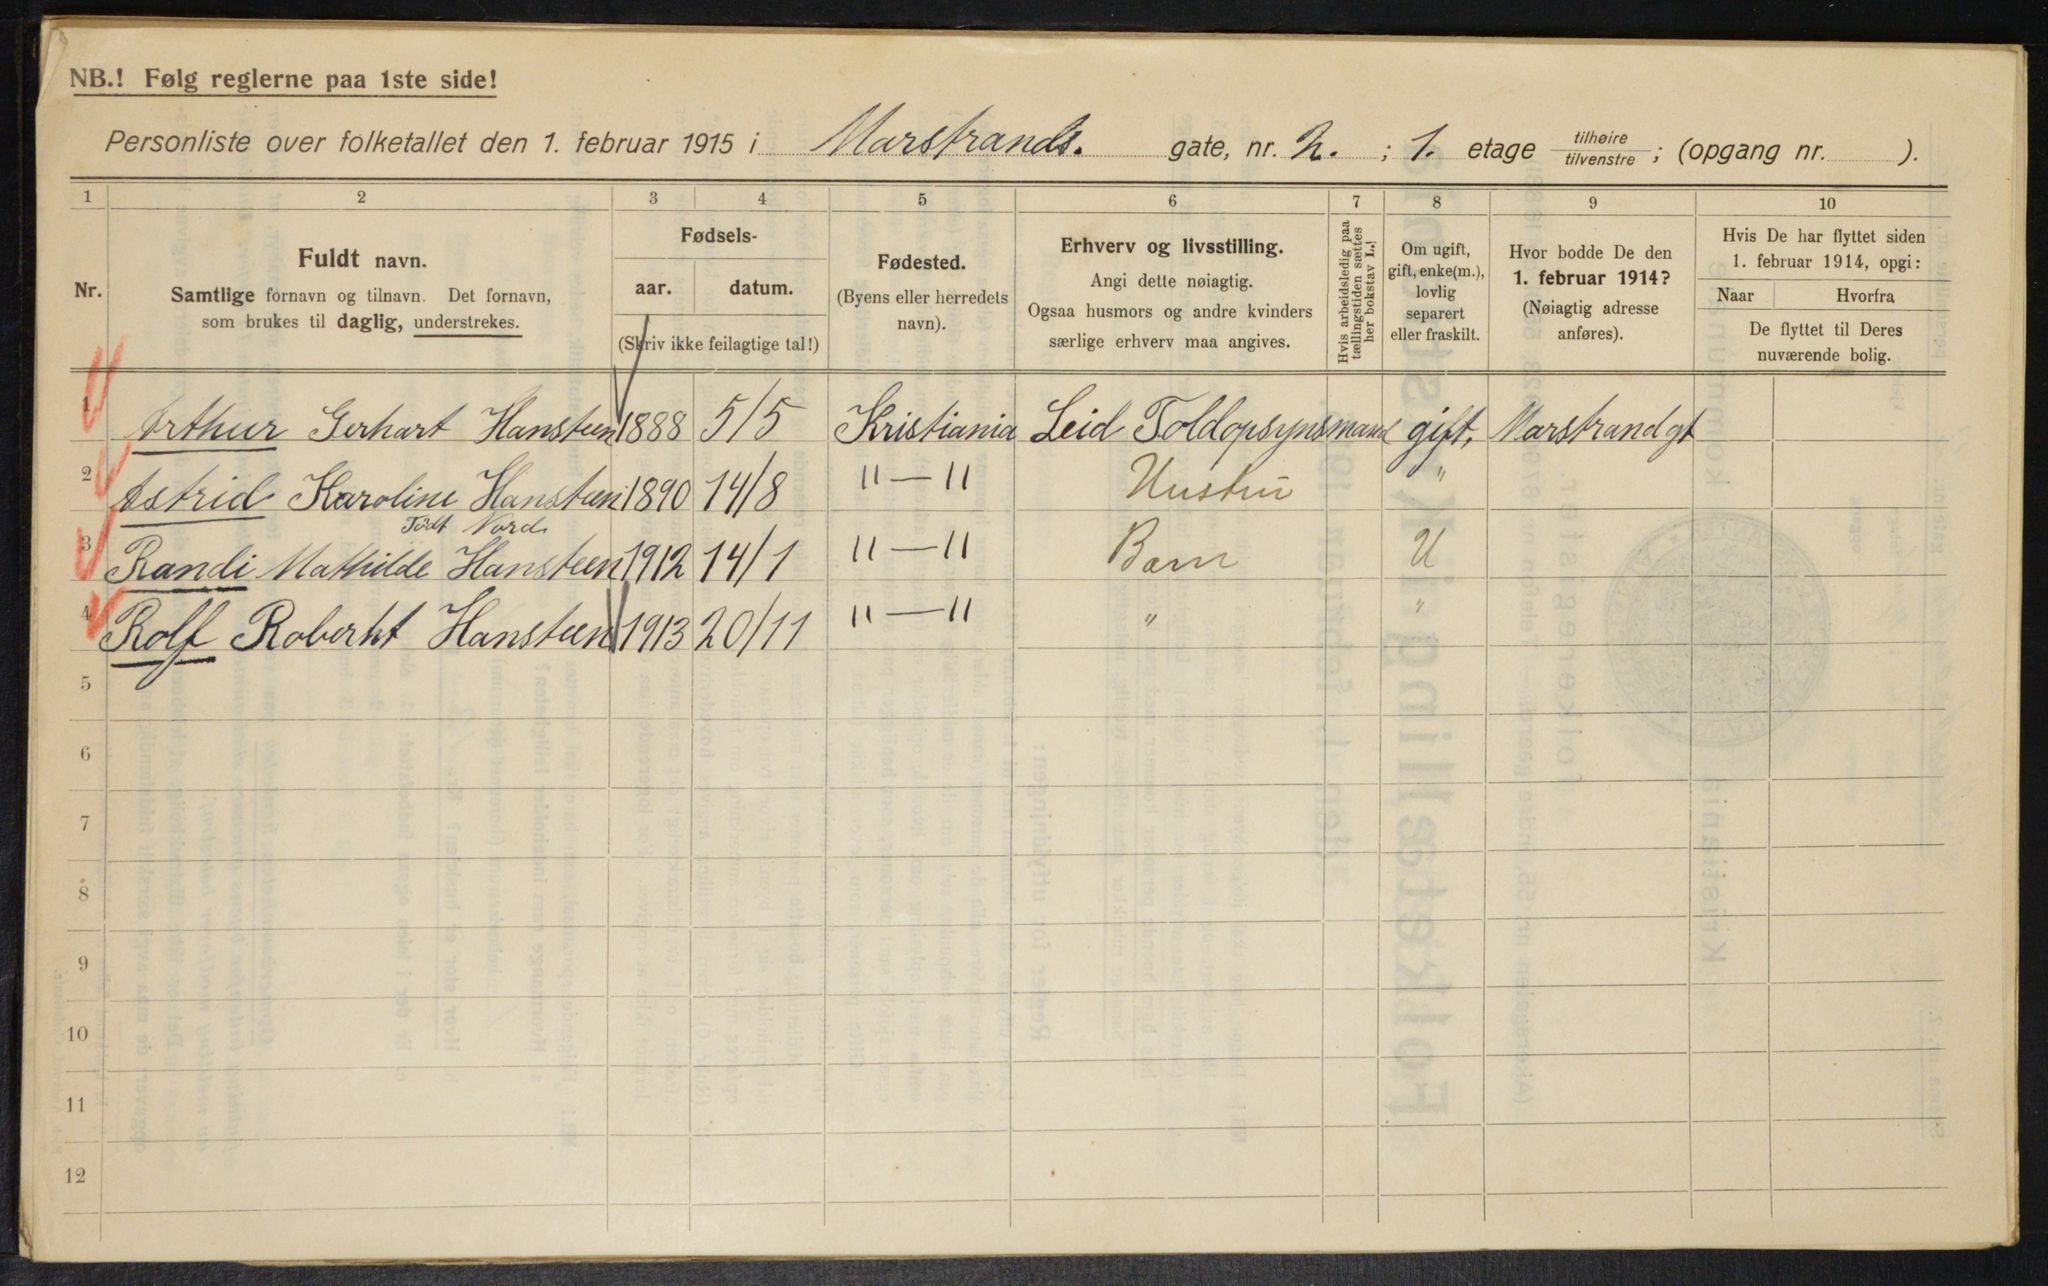 NB.! Følg reglerne paa 1ste side!
Personliste over folketallet den 1. februar 1915 i Marstrands. gate, nr. 2. ; 1. etage tilhøire / tilvenstre ; (opgang nr. ).
1 2 3 4 5 6 7 8 9 10
Nr.
Fuldt navn.
Samtlige fornavn og tilnavn. Det fornavn,
som brukes til daglig, understrekes.
Fødsels-
aar. datum.
(Skriv ikke feilagtige tal!)
Fødested.
(Byens eller herredets
navn).
Erhverv og livsstilling.
Angi dette nøiagtig.
Ogsaa husmors og andre kvinders
særlige erhverv maa angives.
Hvis arbeidsledig paa
tællingstiden sættes
her bokstav L.!
Om ugift,
gift, enke(m.),
lovlig
separert
eller fraskilt.
Hvor bodde De den
1. februar 1914?
(Nøiagtig adresse
anføres).
Hvis De har flyttet siden
1. februar 1914, opgi:
Naar Hvorfra
De flyttet til Deres
nuværende bolig.
1 Arthur Gerhart Hansteen 1888 5/5 Kristiania Leid Toldopsynsmand gift, Marstrandgt
2 Astrid Karoline Hansteen 1890 14/8 " — " Hustru "
Födt Nord
3 Randi Mathilde Hansteen 1912 14/1 " — " Barn U
4 Rolf Roberht Hansteen 1913 20/11 " — " " "
5
6
7
8
9
10
11
12